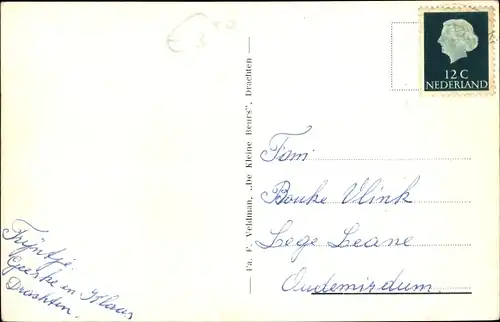 € 3,50
12 C
NEDERLAND
Fa. F. Veldman, „De Kleine Beurs", Drachten
Fam
Bouke Vlink
Lege Leane
Oudemirdum.
Trijntje.
Geeske en Klaas
Drachten.